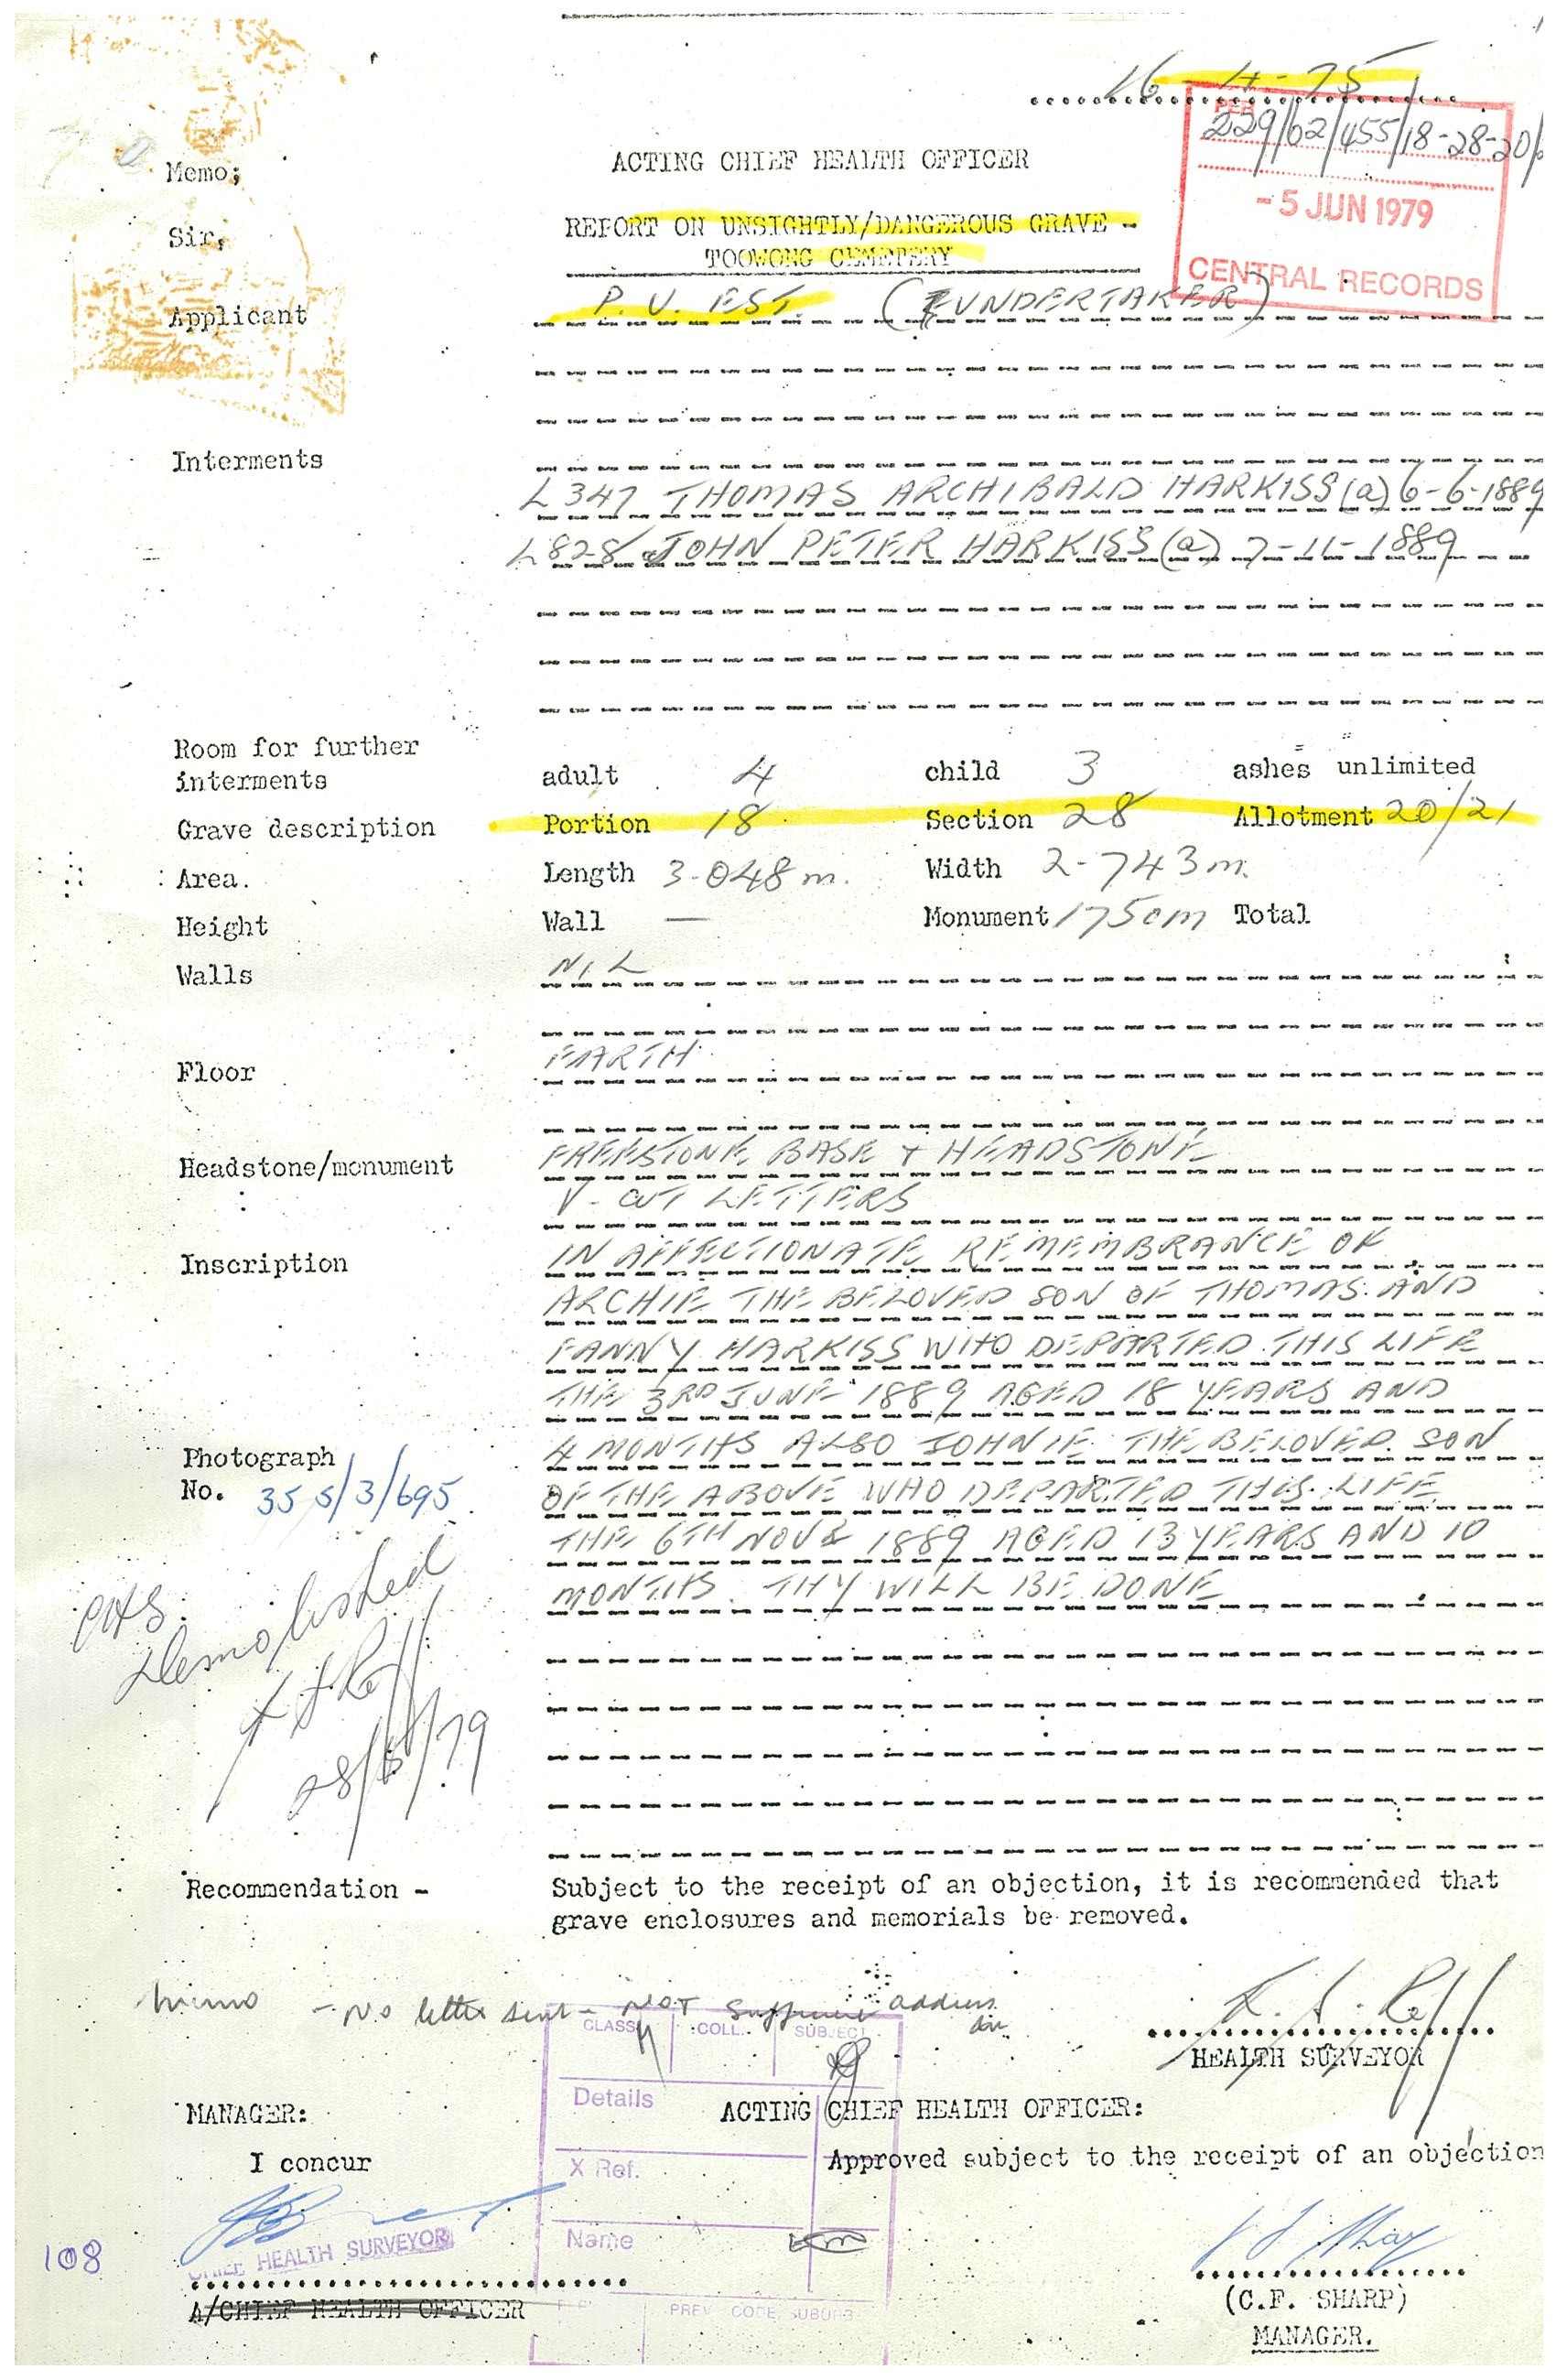 16-4-75
229/62/455/18-28-20/
- 5 JUN 1979
CENTRAL RECORDS
Memo;
ACTING CHIEF HEALTH OFFICER
Sir,
REPORT ON UNSIGHTLY/DANGEROUS GRAVE -
TOOWONG CEMETERY
Applicant P. U. EST (UNDERTAKER)
Interments
L347 THOMAS ARCHIBALD HARKISS (a) 6-6-1889
L828 JOHN PETER HARKISS (a) 7-11-1889
Room for further
interments adult 4 child 3 ashes unlimited
Grave description Portion 18 Section 28 Allotment 20/21
Area. Length 3.048 m. Width 2-743 m.
Height Wall — Monument 175cm Total
Walls NIL
Floor EARTH
Headstone/monument FREESTONE BASE + HEADSTONE
V-CUT LETTERS
Inscription IN AFFECTIONATE REMEMBRANCE OF
ARCHIE THE BELOVED SON OF THOMAS AND
FANNY HARKISS WHO DEPARTED THIS LIFE
THE 3RD JUNE 1889 AGED 18 YEARS AND
Photograph 4 MONTHS ALSO JOHNIE THE BELOVED SON
No. 355/3/695 OF THE ABOVE WHO DEPARTED THIS LIFE
THE 6TH NOV 1889 AGED 13 YEARS AND 10
MONTHS. THY WILL BE DONE
Demolished
28/6/79
Recommendation - Subject to the receipt of an objection, it is recommended that
grave enclosures and memorials be removed.
- No letter sent - NOT sufficient address
CLASS COLL. SUBJECT
HEALTH SURVEYOR
Details
MANAGER: ACTING CHIEF HEALTH OFFICER:
I concur Approved subject to the receipt of an objection
X Ref.
Name
CHIEF HEALTH SURVEYOR
108
A/CHIEF HEALTH OFFICER
PREV CODE SUBURB
(C.F. SHARP)
MANAGER.